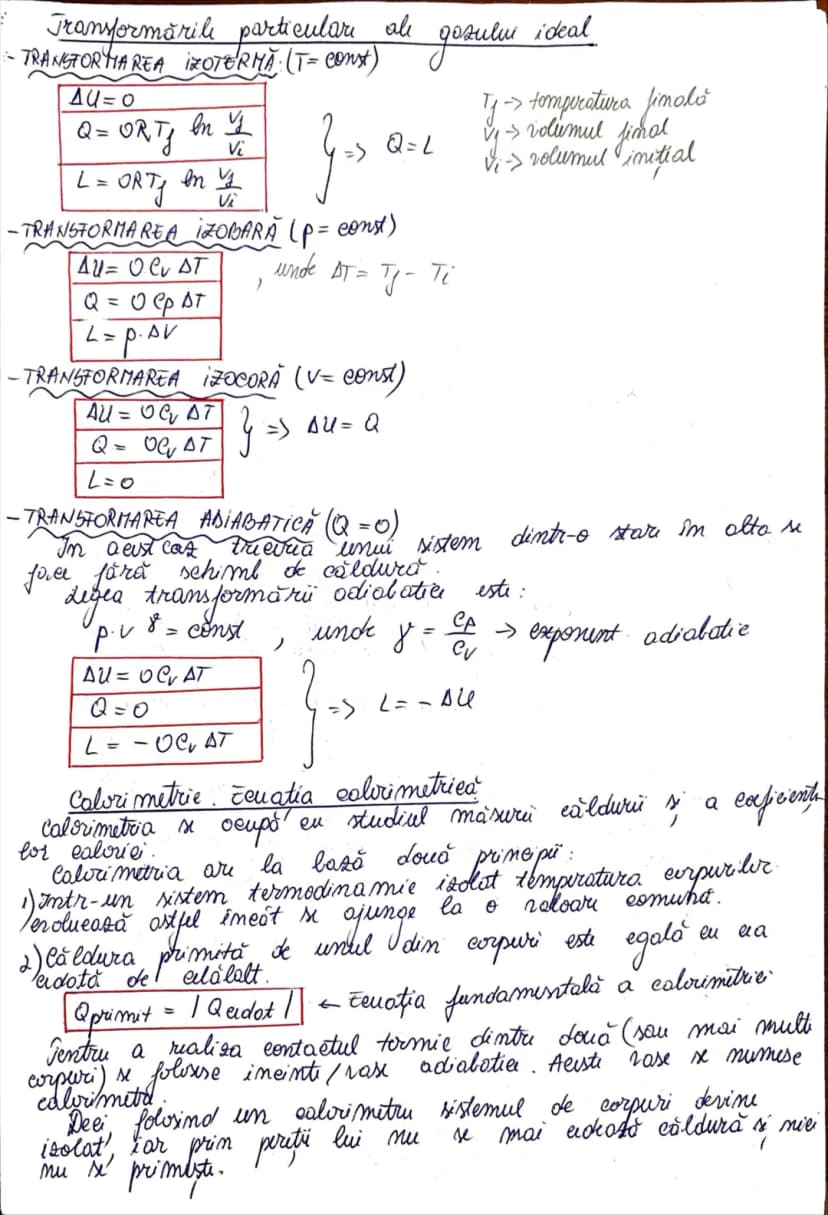 Transformările particulare ale gazului ideal
- TRANSFORMAREA IZOTERMĂ (T = const)
ΔU = 0
Q = υRTf ln Vf/Vi
L = υRTf ln Vf/Vi
} => Q = L
Tf -> temperatura finală
Vf -> volumul final
Vi -> volumul inițial
- TRANSFORMAREA IZOBARĂ (p = const)
ΔU = υCv ΔT
Q = υCp ΔT
L = p·ΔV
, unde ΔT = Tf - Ti
- TRANSFORMAREA IZOCORĂ (V = const)
ΔU = υCv ΔT
Q = υCv ΔT
L = 0
} => ΔU = Q
- TRANSFORMAREA ADIABATICĂ (Q = 0)
În acest caz trecerea unui sistem dintr-o stare în alta se
face fără schimb de căldură.
Legea transformării adiabatice este:
p·V^γ = const , unde γ = Cp/Cv -> exponent adiabatic
ΔU = υCv ΔT
Q = 0
L = - υCv ΔT
} => L = - ΔU
Calorimetrie. Ecuația calorimetrică
Calorimetria se ocupă cu studiul măsurii căldurii și a coeficienți-
lor calorici.
Calorimetria are la bază două principii:
1) Într-un sistem termodinamic izolat temperatura corpurilor
evoluează astfel încât se ajunge la o valoare comună.
2) Căldura primită de unul din corpuri este egală cu cea
cedată de celălalt.
Qprimit = |Qcedat| <- Ecuația fundamentală a calorimetriei
Pentru a realiza contactul termic dintre două (sau mai multe
corpuri) se folosesc incinte/vase adiabatice. Aceste vase se numesc
calorimetre.
Deci folosind un calorimetru sistemul de corpuri devine
izolat, iar prin pereții lui nu se mai cedează căldură și nici
nu se primește.